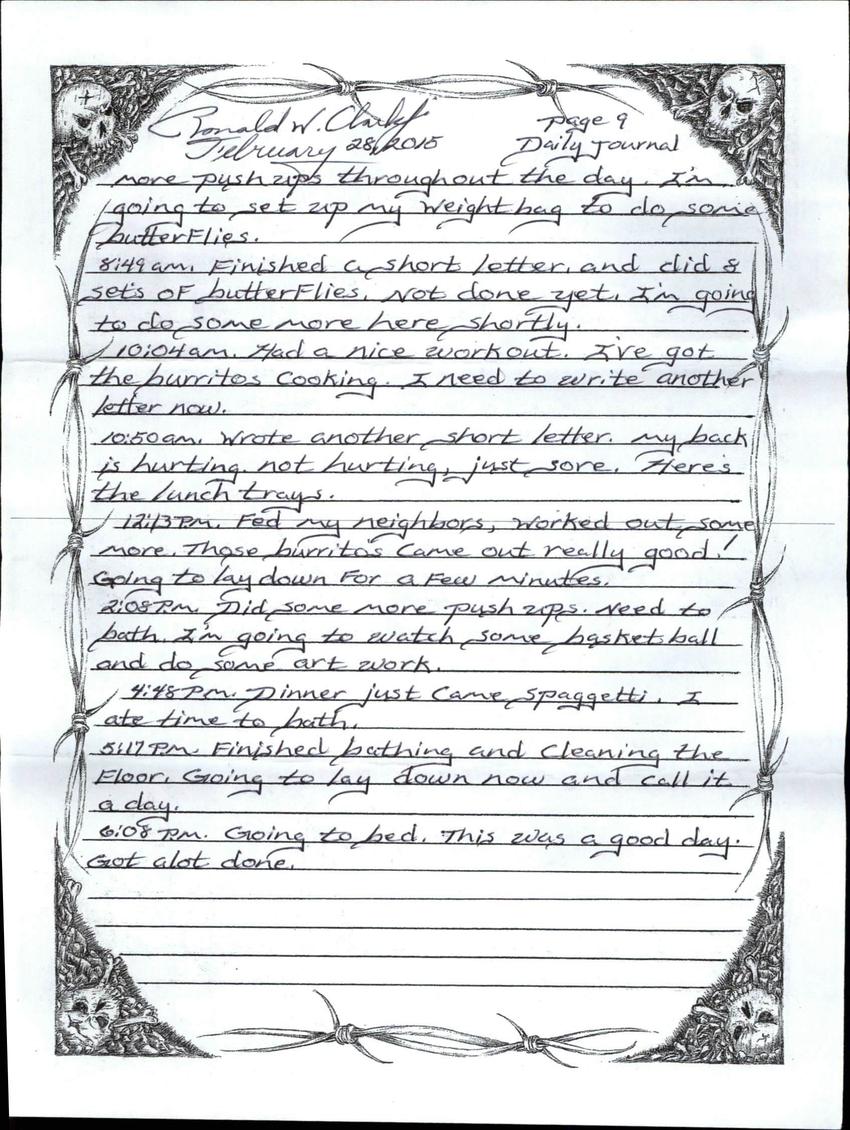 Ronald W. Clark Jr page 9
February 28, 2015 Daily Journal
more push ups throughout the day. I'm
going to set up my weight bag to do some
butterflies.
8:49 am. Finished a short letter. and did 8
sets of butterflies. Not done yet. I'm going
to do some more here shortly.
10:04 am. Had a nice workout. I've got
the burritos cooking. I need to write another
letter now.
10:50 am. Wrote another short letter. my back
is hurting. not hurting, just sore. Here's
the lunch trays.
12:13 PM. Fed my neighbors, worked out some
more. Those burritos came out really good!
Going to lay down for a few minutes.
2:08 PM. Did some more push ups. Need to
bath. I'm going to watch some basketball
and do some art work.
4:48 PM. Dinner just came spaggetti. I
ate time to bath.
5:17 PM. Finished bathing and cleaning the
floor. Going to lay down now and call it
a day.
6:08 PM. Going to bed. This was a good day.
Got alot done.